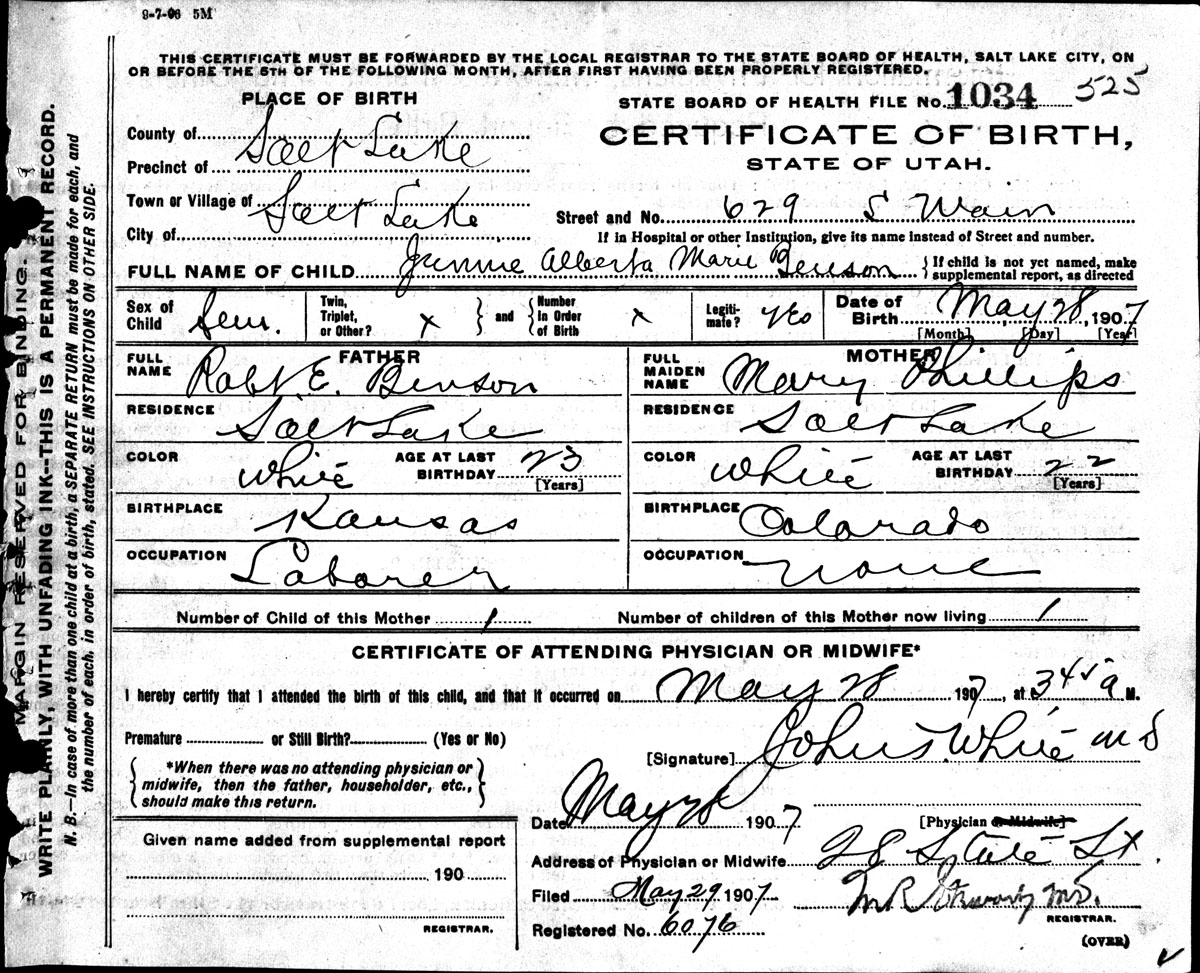 9-7-06 5M
THIS CERTIFICATE MUST BE FORWARDED BY THE LOCAL REGISTRAR TO THE STATE BOARD OF HEALTH, SALT LAKE CITY, ON
OR BEFORE THE 5TH OF THE FOLLOWING MONTH, AFTER FIRST HAVING BEEN PROPERLY REGISTERED.
PLACE OF BIRTH
STATE BOARD OF HEALTH FILE No. 1034 525
County of Salt Lake
CERTIFICATE OF BIRTH,
STATE OF UTAH.
Precinct of
Town or Village of Salt Lake
Street and No. 629 S
City of
If in Hospital or other Institution, give its name instead of Street and number.
FULL NAME OF CHILD Alberta Marie Benson { If child is not yet named, make
supplemental report, as directed
Sex of Child Fem. Twin, Triplet, or Other? x } and { Number In Order of Birth x Legiti-mate? yes Date of Birth May 28, 1907
[Month] [Day] [Year]
FATHER
FULL NAME Robt E. Benson
RESIDENCE Salt Lake
COLOR White AGE AT LAST BIRTHDAY 23
[Years]
BIRTHPLACE Kansas
OCCUPATION Laborer
MOTHER
FULL MAIDEN NAME Mary Phillips
RESIDENCE Salt Lake
COLOR White AGE AT LAST BIRTHDAY 22
[Years]
BIRTHPLACE Colorado
OCCUPATION None
Number of Child of this Mother 1 Number of children of this Mother now living 1
CERTIFICATE OF ATTENDING PHYSICIAN OR MIDWIFE*
I hereby certify that I attended the birth of this child, and that it occurred on May 28 1907, at 345 a M.
Premature or Still Birth? (Yes or No)
[Signature] John S. White MD
{ *When there was no attending physician or
midwife, then the father, householder, etc.,
should make this return. }
Date May 28 1907 [Physician or Midwife]
Given name added from supplemental report
190
REGISTRAR.
Address of Physician or Midwife 28 State St.
Filed May 29 1907 M R M.D.
REGISTRAR.
Registered No. 6076
(OVER)
MARGIN RESERVED FOR BINDING.
WRITE PLAINLY, WITH UNFADING INK--THIS IS A PERMANENT RECORD.
N. B.—In case of more than one child at a birth, a SEPARATE RETURN must be made for each, and
the number of each, in order of birth, stated. SEE INSTRUCTIONS ON OTHER SIDE.